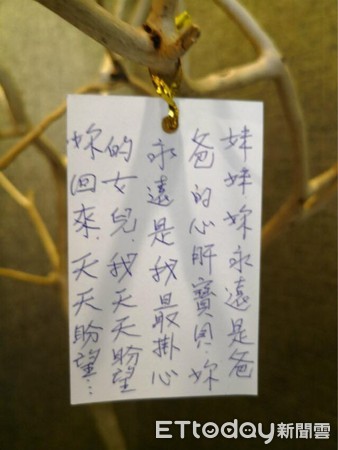 妹妹妳永遠是爸
爸的心肝寶貝.妳
永遠是我最掛心
的女兒.我天天盼望
妳回來.天天盼望...
ETtoday新聞雲